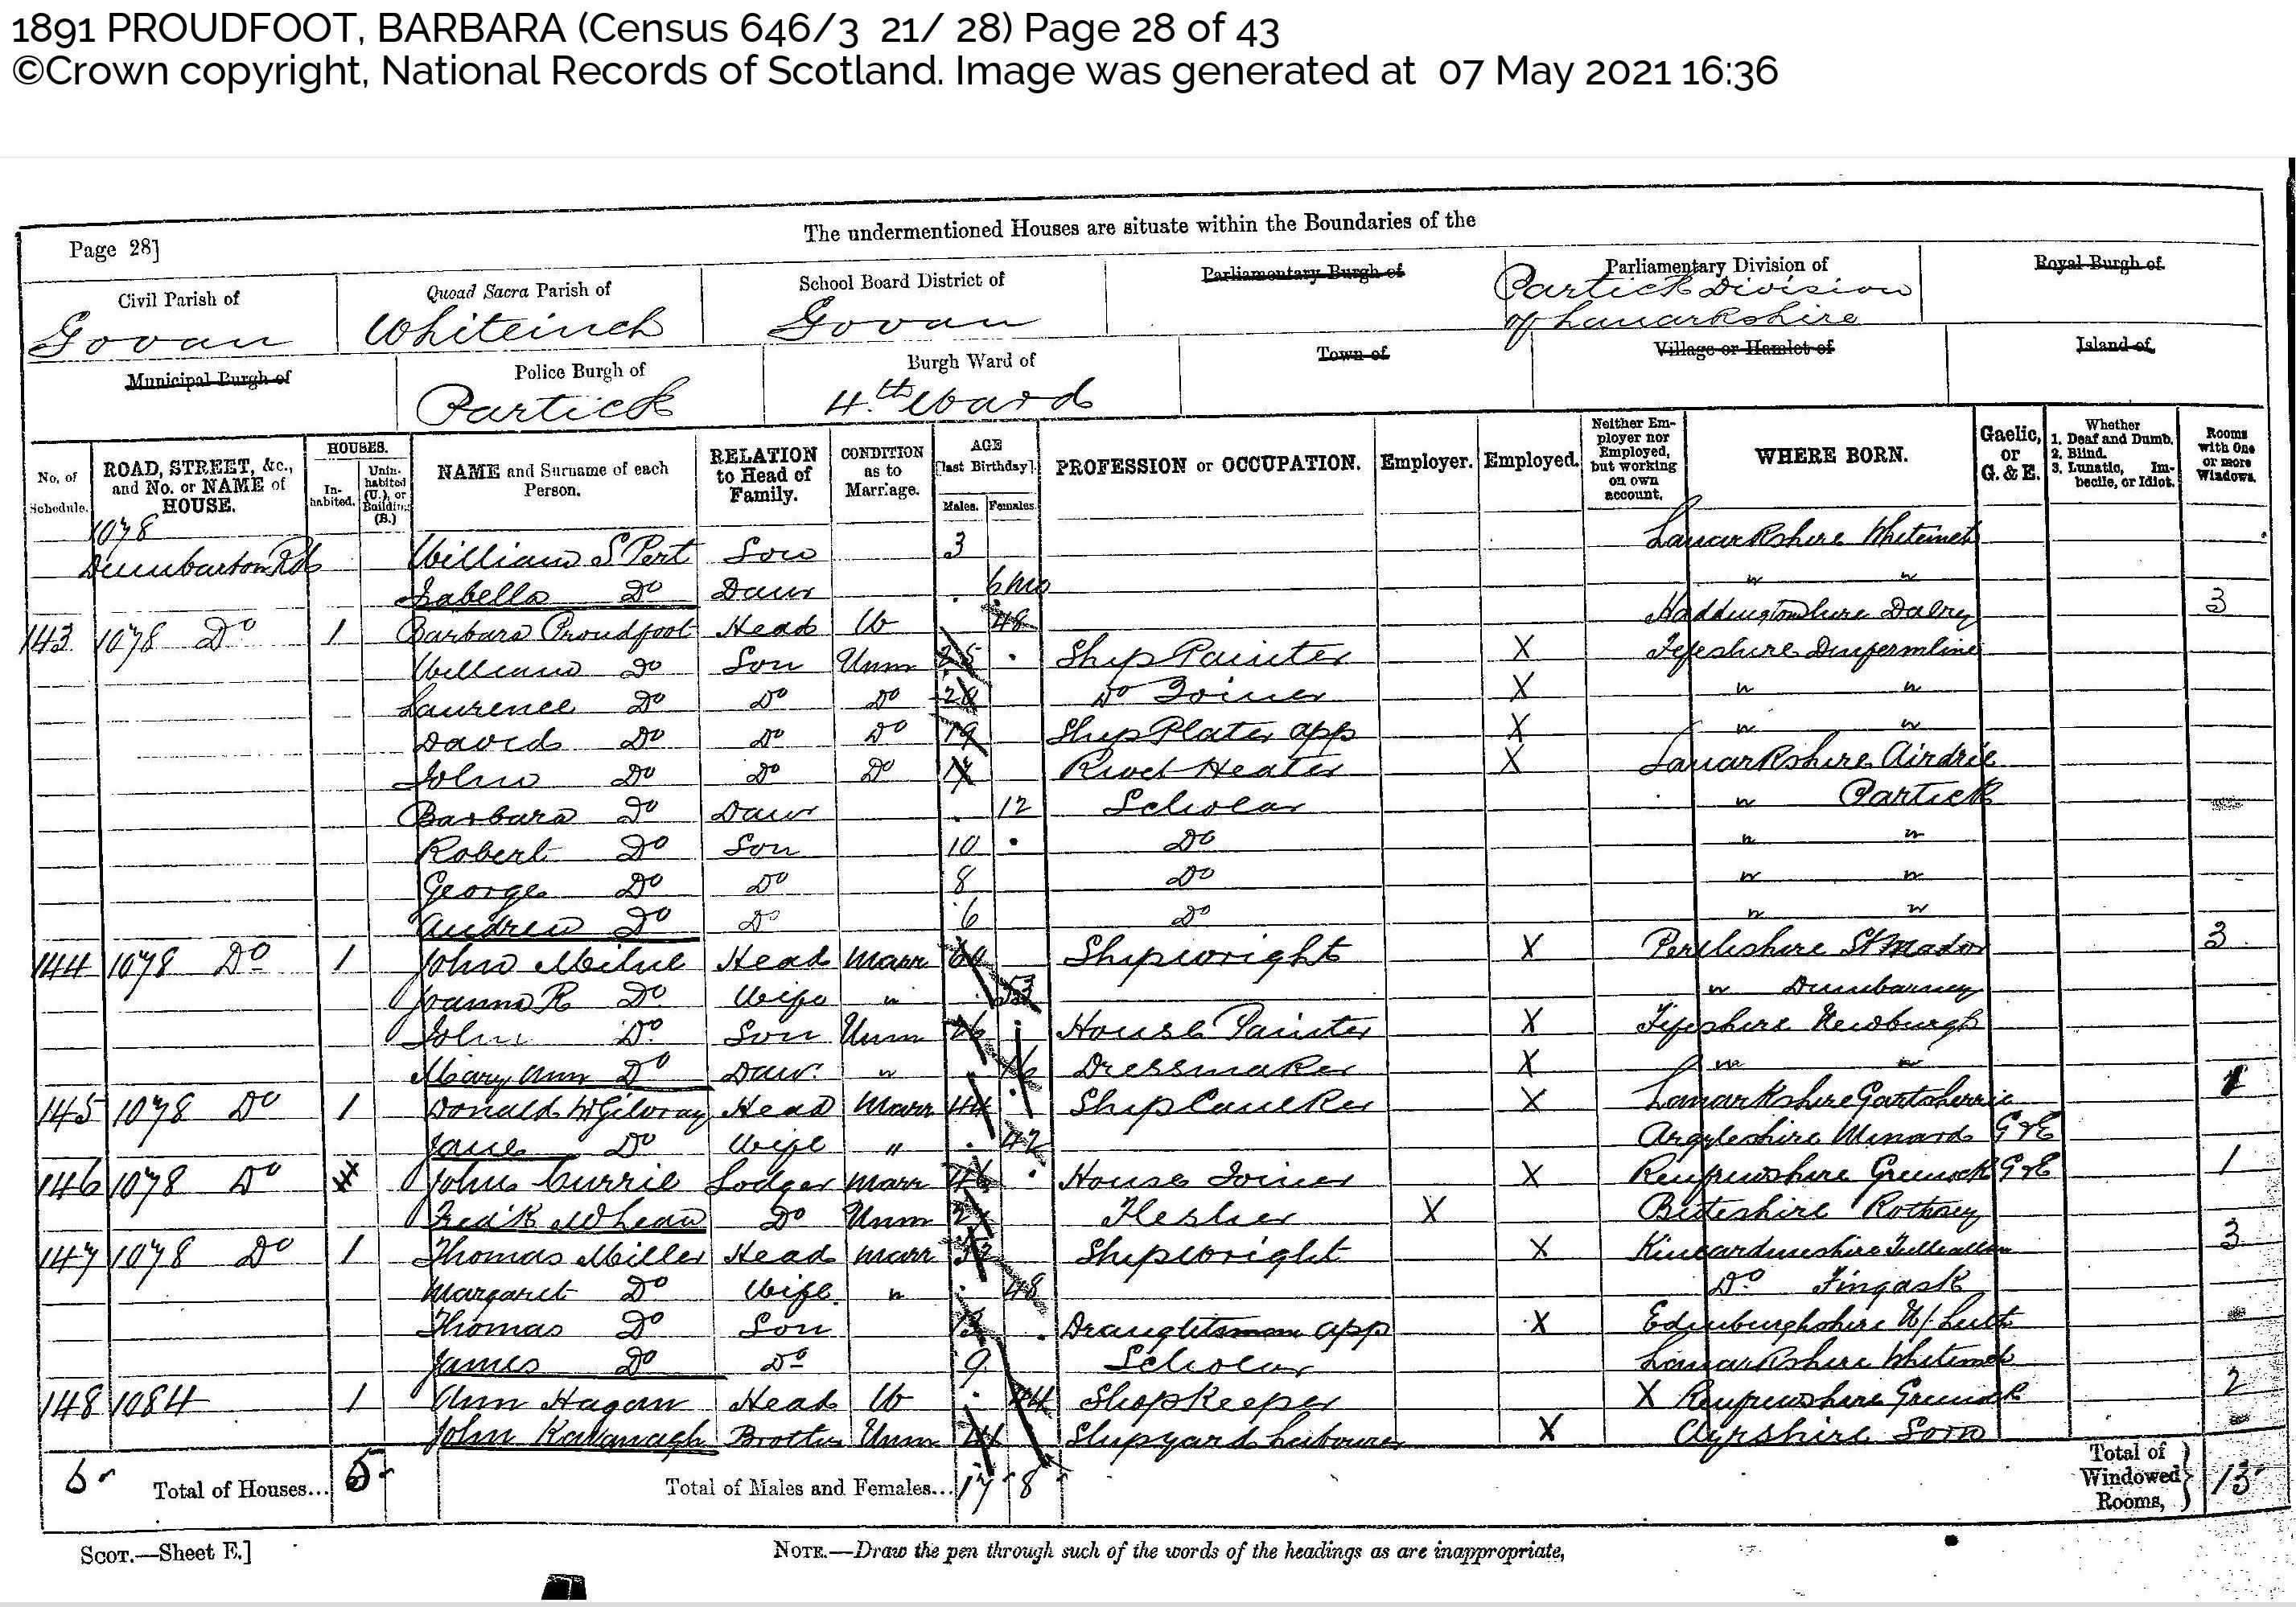 1891 PROUDFOOT, BARBARA (Census 646/3 21/ 28) Page 28 of 43
©Crown copyright, National Records of Scotland. Image was generated at 07 May 2021 16:36
The undermentioned Houses are situate within the Boundaries of the
Page 28]
Civil Parish of Govan
Quoad Sacra Parish of Whiteinch
School Board District of Govan
Parliamentary Burgh of
Parliamentary Division of Partick Division of Lanarkshire
Royal Burgh of
Municipal Burgh of
Police Burgh of Partick
Burgh Ward of 4.th Ward
Town of
Village or Hamlet of
Island of
No. of Schedule.
ROAD, STREET, &c., and No. or NAME of HOUSE.
HOUSES.
Inhabited.
Uninhabited (U.), or Building (B.)
NAME and Surname of each Person.
RELATION to Head of Family.
CONDITION as to Marriage.
AGE [last Birthday].
Males. Females.
PROFESSION or OCCUPATION.
Employer.
Employed.
Neither Employer nor Employed, but working on own account.
WHERE BORN.
Gaelic, or G. & E.
Whether 1. Deaf and Dumb. 2. Blind. 3. Lunatic, Imbecile, or Idiot.
Rooms with One or more Windows.
1078 Dumbarton Rd William S Pert Son 3 Lanarkshire Whiteinch
Isabella Do Daur 6 mo " "
143 1078 Do 1 Barbara Proudfoot Head W 48 Haddingtonshire 3
William Do Son Unm 25 Ship Painter X Fifeshire Dunfermline
Laurence Do Do Do Do Joiner X " "
David Do Do Do 19 Ship Plater app X " "
John Do Do Do Rivet Heater X Lanarkshire Airdrie
Barbara Do Daur 12 Scholar " Partick
Robert Do Son 10 Do " "
George Do Do 8 Do " "
Andrew Do Do 6 Do " "
144 1078 Do 1 John Milne Head Marr Shipwright X Perthshire St Madox 3
Joanna R Do Wife " 53 " Dunbarney
John Do Son Unm House Painter X Fifeshire Newburgh
Mary Ann Do Daur. " 16 Dressmaker X " "
145 1078 Do 1 Donald Head Marr 44 Ship Caulker X Lanarkshire Gartsherrie
Jane Do Wife " 42 Argyleshire Minard G & E
146 1078 Do John Currie Lodger Marr 46 House Joiner X Renfrewshire Greenock G & E 1
Fred'k McLean Do Unm Flesher X Buteshire Rothsey
147 1078 Do 1 Thomas Miller Head Marr Shipwright X 3
Margaret Do Wife. " 48 Do Fingask
Thomas Do Son Draughtsman app X Edinburghshire N/ Leith
James Do Do 9 Scholar Lanarkshire Whiteinch
148 1084 1 Ann Hagan Head W Shopkeeper X Renfrewshire Greenock 2
John Kavanagh Brother Unm Shipyard Labourer X Ayrshire Sorn
Total of Houses... 5
Total of Males and Females... 17 8
Total of Windowed Rooms, 13
SCOT.—Sheet E.]
NOTE.—Draw the pen through such of the words of the headings as are inappropriate,